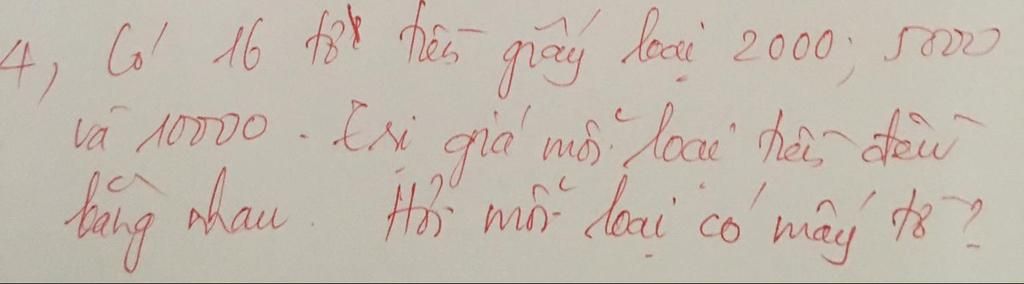 4, Có 16 tờ tiền giấy loại 2000; 5000
và 10000. Trị giá mỗi loại tiền đều
bằng nhau. Hỏi mỗi loại có mấy tờ?